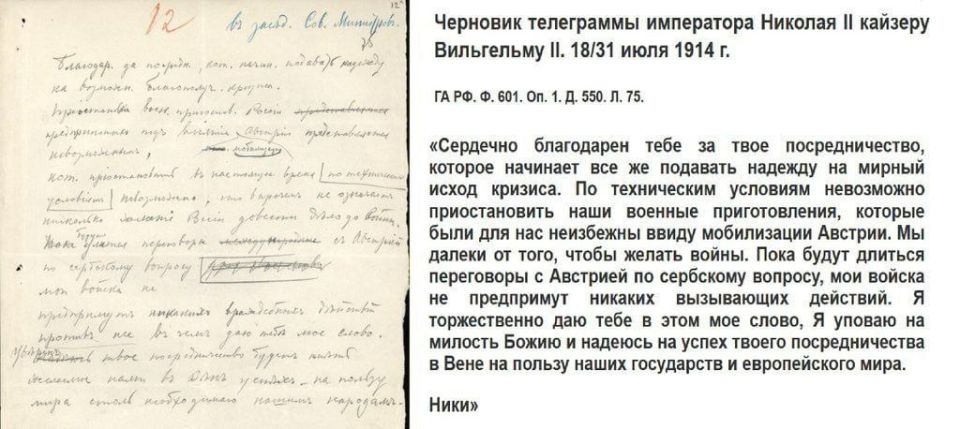 12
въ засѣд. Сов. Министровъ.
75
Благодар. за посредн., кот. начин. подавать надежду
на возможн. благополуч. кризиса.
Приостановка воен. приготов. Россіи представляется
предпринятыхъ Австріи представляется
невозможнымъ,
мобилизаціи
кот. приостановить въ настоящее время по техническимъ
условіямъ невозможно, что впрочемъ не означаетъ
нисколько желаніе Россіи довести дѣло до войны.
Пока будутъ переговоры съ Австріей
по сербскому вопросу
мои войска не
предпримутъ никакихъ враждебныхъ дѣйствій
противъ нее въ чемъ даю тебѣ мое слово.
твое посредничество будетъ имѣть
въ успѣхъ на пользу
мира столь необходимаго нашимъ народамъ.
Черновик телеграммы императора Николая II кайзеру
Вильгельму II. 18/31 июля 1914 г.
ГА РФ. Ф. 601. Оп. 1. Д. 550. Л. 75.
«Сердечно благодарен тебе за твое посредничество,
которое начинает все же подавать надежду на мирный
исход кризиса. По техническим условиям невозможно
приостановить наши военные приготовления, которые
были для нас неизбежны ввиду мобилизации Австрии. Мы
далеки от того, чтобы желать войны. Пока будут длиться
переговоры с Австрией по сербскому вопросу, мои войска
не предпримут никаких вызывающих действий. Я
торжественно даю тебе в этом мое слово, Я уповаю на
милость Божию и надеюсь на успех твоего посредничества
в Вене на пользу наших государств и европейского мира.
Ники»